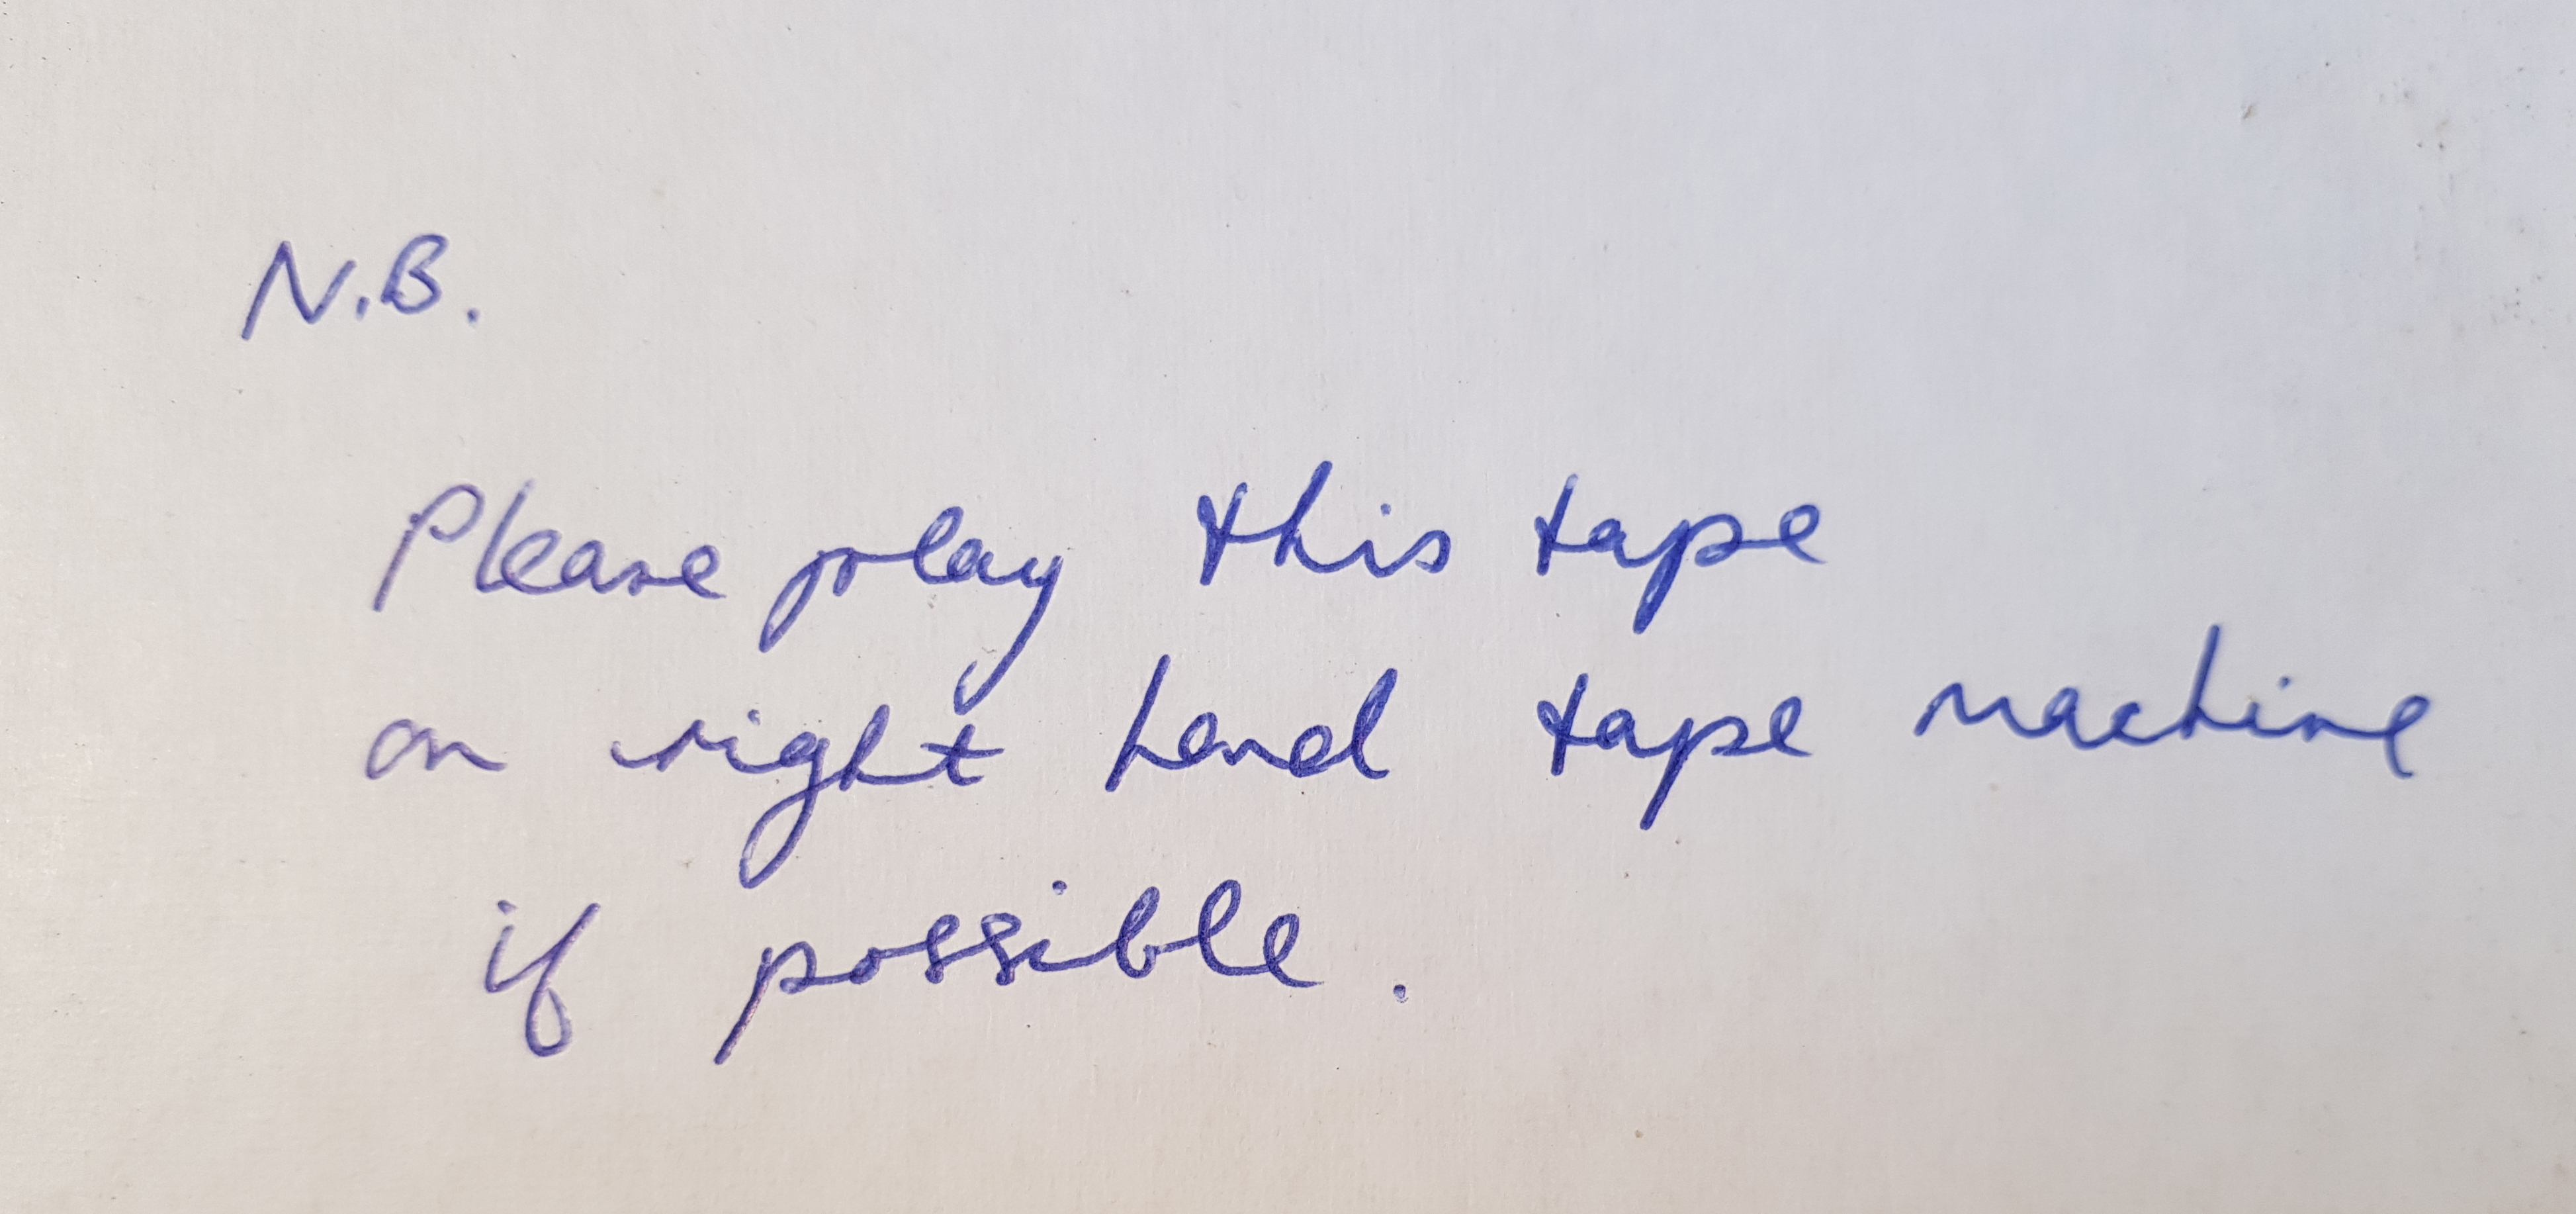 N.B.
Please play this tape
on right hand tape machine
if possible.